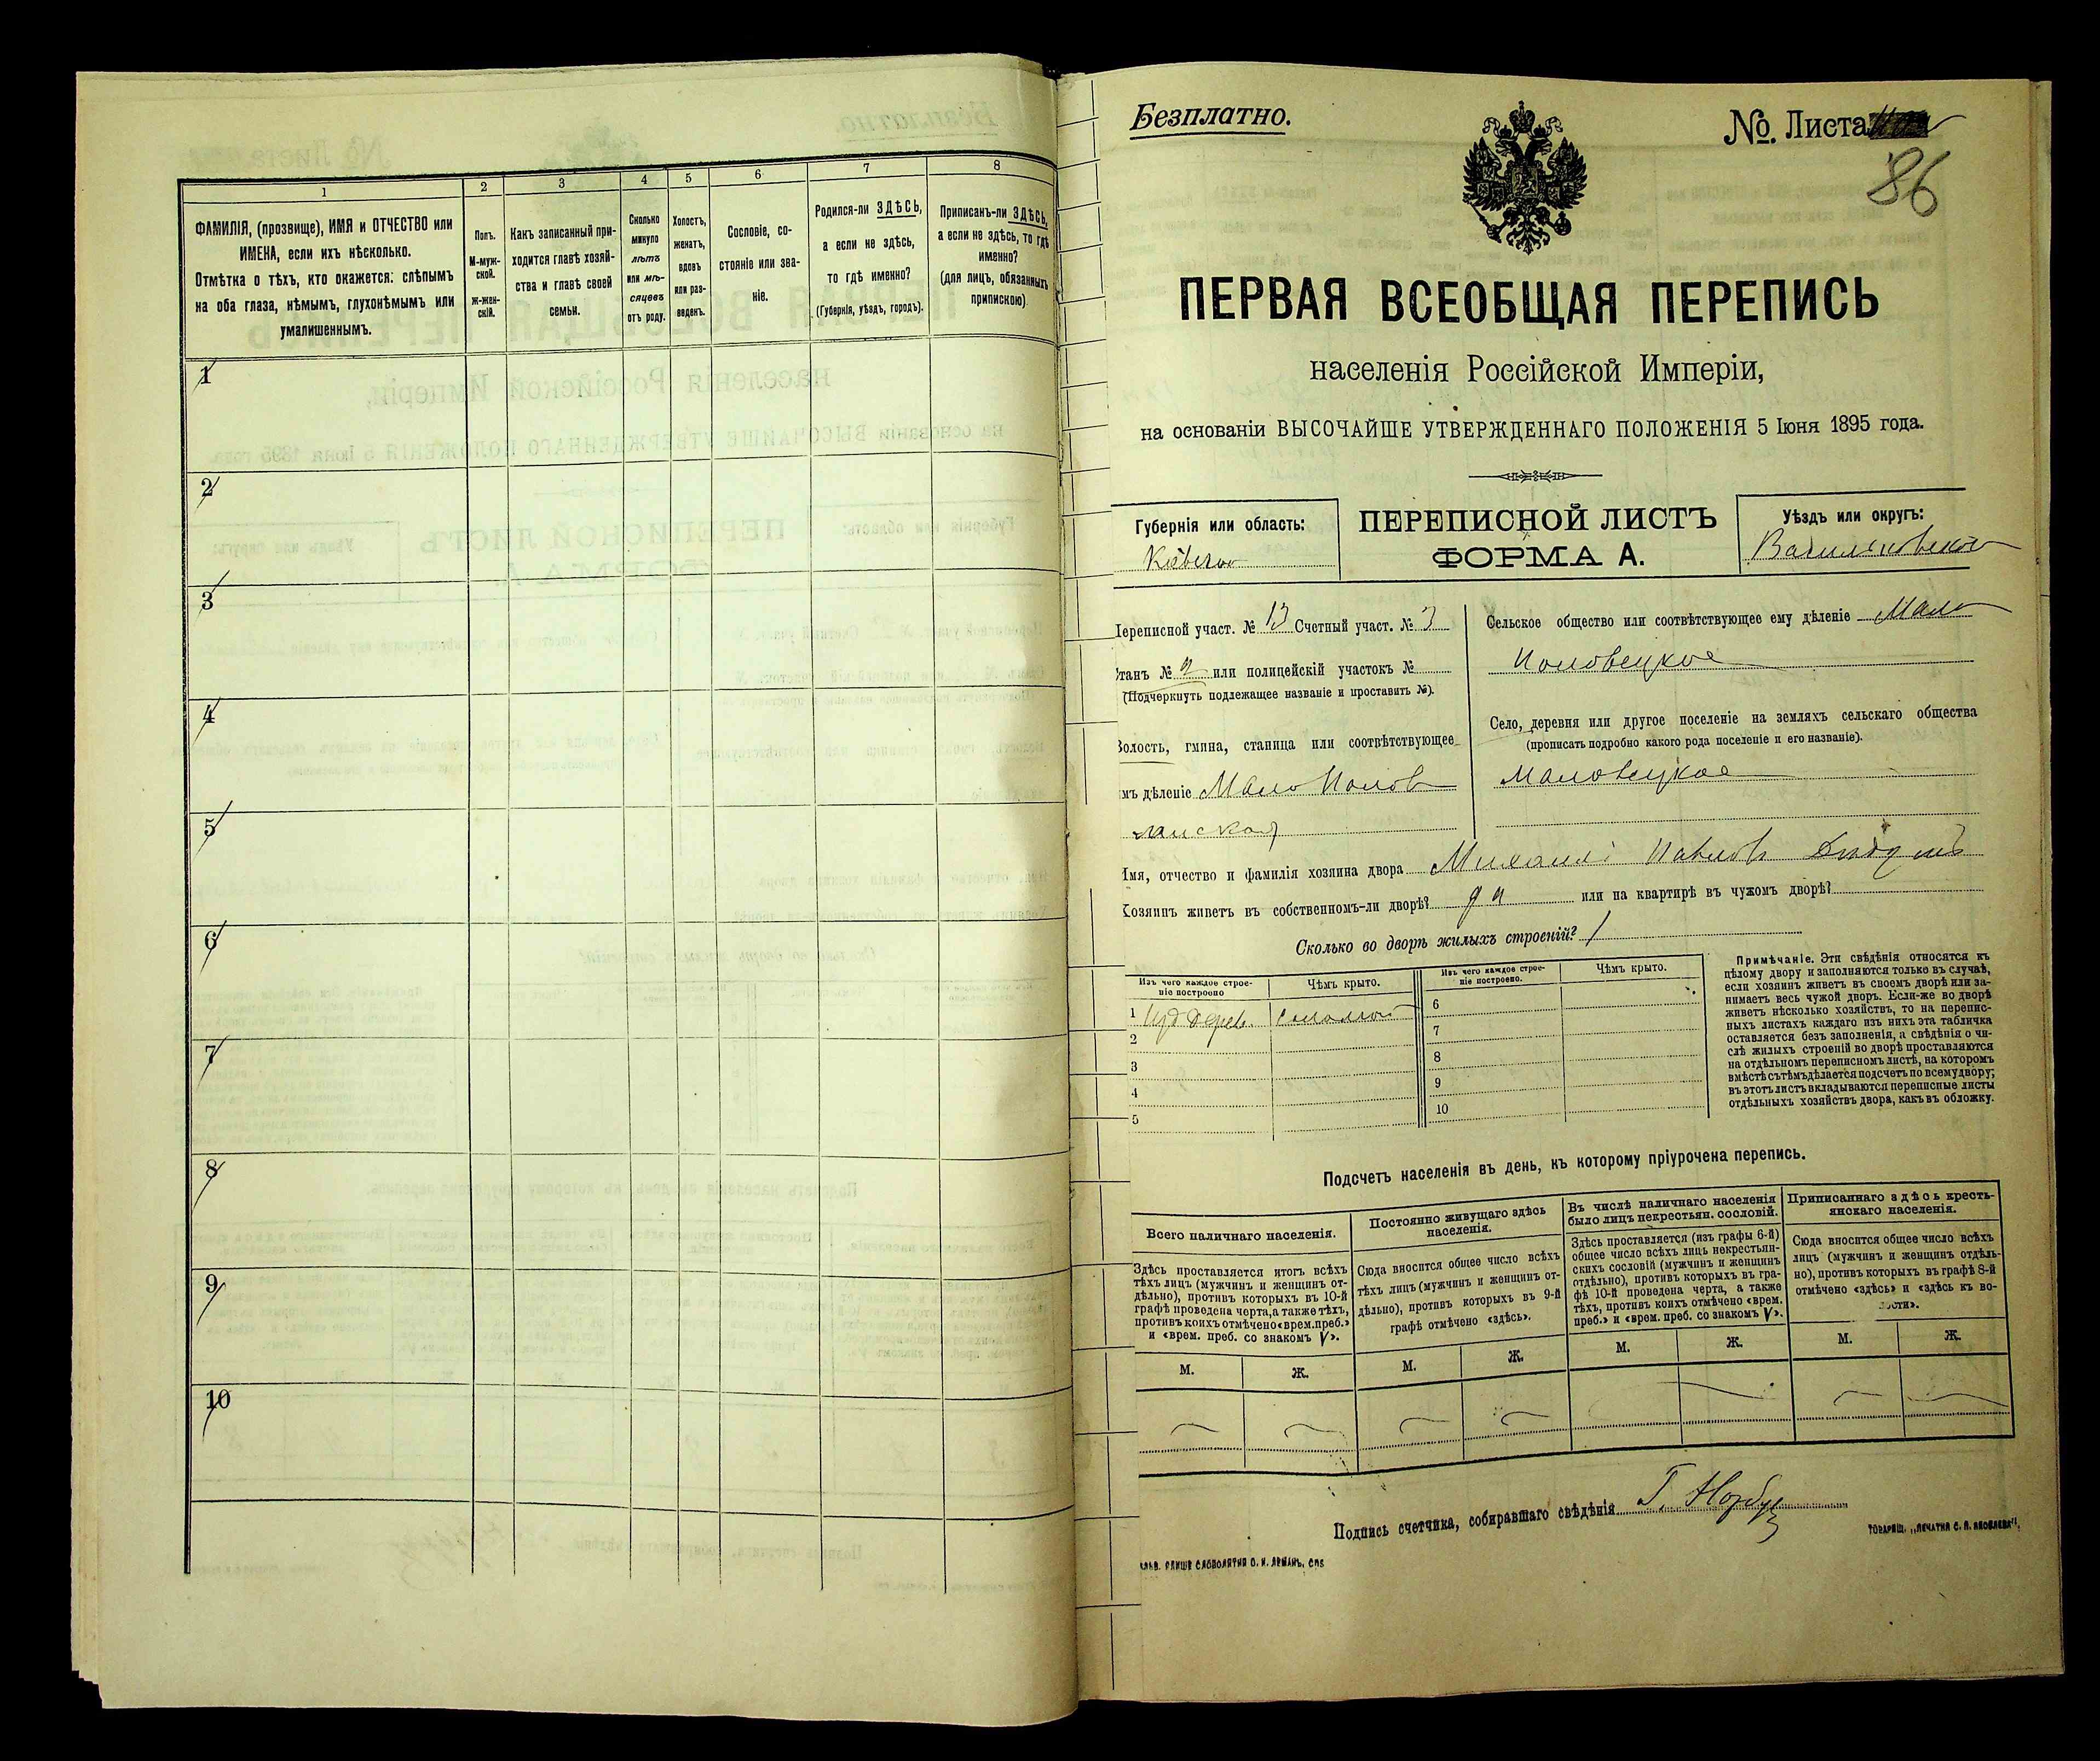 1
2
3
4
5
6
7
8
ФАМИЛІЯ, (прозвище), ИМЯ и ОТЧЕСТВО или
ИМЕНА, если ихъ нѣсколько.
Отмѣтка о тѣхъ, кто окажется: слѣпымъ
на оба глаза, нѣмымъ, глухонѣмымъ или
умалишеннымъ.
Полъ.
М-муж-
ской.
Ж-жен-
скій.
Какъ записанный при-
ходится главѣ хозяй-
ства и главѣ своей
семьи.
Сколько
минуло
лѣтъ
или мѣ-
сяцевъ
отъ роду.
Холостъ,
женатъ,
вдовъ
или раз-
веденъ.
Сословіе, со-
стояніе или зва-
ніе.
Родился-ли ЗДѢСЬ,
а если не здѣсь,
то гдѣ именно?
(Губернія, уѣздъ, городъ).
Приписанъ-ли ЗДѢСЬ,
а если не здѣсь, то гдѣ
именно?
(для лицъ, обязанныхъ
припискою)
1
2
3
4
5
6
7
8
9
10
Безплатно.
№. Листа
86
ПЕРВАЯ ВСЕОБЩАЯ ПЕРЕПИСЬ
населенія Россійской Имперіи,
на основаніи ВЫСОЧАЙШЕ УТВЕРЖДЕННАГО ПОЛОЖЕНІЯ 5 Іюня 1895 года.
Губернія или область:
Кіевская
ПЕРЕПИСНОЙ ЛИСТЪ
ФОРМА А.
Уѣздъ или округъ:
Васильковскій
Переписной участ. № 13 Счетный участ. № 3
Станъ № 2 или полицейскій участокъ №
(Подчеркнуть подлежащее названіе и проставить №).
Волость, гмина, станица или соотвѣтствующее
имъ дѣленіе Мало Полов
Сельское общество или соотвѣтствующее ему дѣленіе Мало
Половецкое
Село, деревня или другое поселеніе на земляхъ сельскаго общества
(прописать подробно какого рода поселеніе и его названіе).
Имя, отчество и фамилія хозяина двора Михаилъ Павловъ
Хозяинъ живетъ въ собственномъ-ли дворѣ? да или на квартирѣ въ чужомъ дворѣ?
Сколько во дворѣ жилыхъ строеній? 1
Изъ чего каждое строе-
ніе построено
Чѣмъ крыто.
Изъ чего каждое строе-
ніе построено.
Чѣмъ крыто.
1 Изъ дерев. Соломой
2
3
4
5
6
7
8
9
10
Примѣчаніе. Эти свѣдѣнія относятся къ
цѣлому двору и заполняются только въ случаѣ,
если хозяинъ живетъ въ своемъ дворѣ или за-
нимаетъ весь чужой дворъ. Если-же во дворѣ
живетъ нѣсколько хозяйствъ, то на перепис-
ныхъ листахъ каждаго изъ нихъ эта табличка
оставляется безъ заполненія, а свѣдѣнія о чи-
слѣ жилыхъ строеній во дворѣ проставляются
на отдѣльномъ переписномъ листѣ, на которомъ
вмѣстѣ съ тѣмъ дѣлается подсчетъ по всему двору;
въ этотъ листъ вкладываются переписные листы
отдѣльныхъ хозяйствъ двора, какъ въ обложку.
Подсчетъ населенія въ день, къ которому пріурочена перепись.
Всего наличнаго населенія.
Здѣсь проставляется итогъ всѣхъ
тѣхъ лицъ (мужчинъ и женщинъ от-
дѣльно), противъ которыхъ въ 10-й
графѣ проведена черта, а также тѣхъ,
противъ коихъ отмѣчено «врем. преб.»
и «врем. преб. со знакомъ V».
М.
Ж.
Постоянно живущаго здѣсь
населенія.
Сюда вносится общее число всѣхъ
тѣхъ лицъ (мужчинъ и женщинъ от-
дѣльно), противъ которыхъ въ 9-й
графѣ отмѣчено «здѣсь».
М.
Ж.
Въ числѣ наличнаго населенія
было лицъ некрестьян. сословій.
Здѣсь проставляется (изъ графы 6-й)
общее число всѣхъ лицъ некрестьян-
скихъ сословій (мужчинъ и женщинъ
отдѣльно), противъ которыхъ въ гра-
фѣ 10-й проведена черта, а также
тѣхъ, противъ коихъ отмѣчено «врем.
преб.» и «врем. преб. со знакомъ V».
М.
Ж.
Приписаннаго здѣсь кресть-
янскаго населенія.
Сюда вносится общее число всѣхъ
лицъ (мужчинъ и женщинъ отдѣль-
но), противъ которыхъ въ графѣ 8-й
отмѣчено «здѣсь» и «здѣсь къ во-
лости».
М.
Ж.
Подпись счетчика, собиравшаго свѣдѣнія
ТОВАРИЩ. „ПЕЧАТНЯ С. П. ЯКОВЛЕВА“,